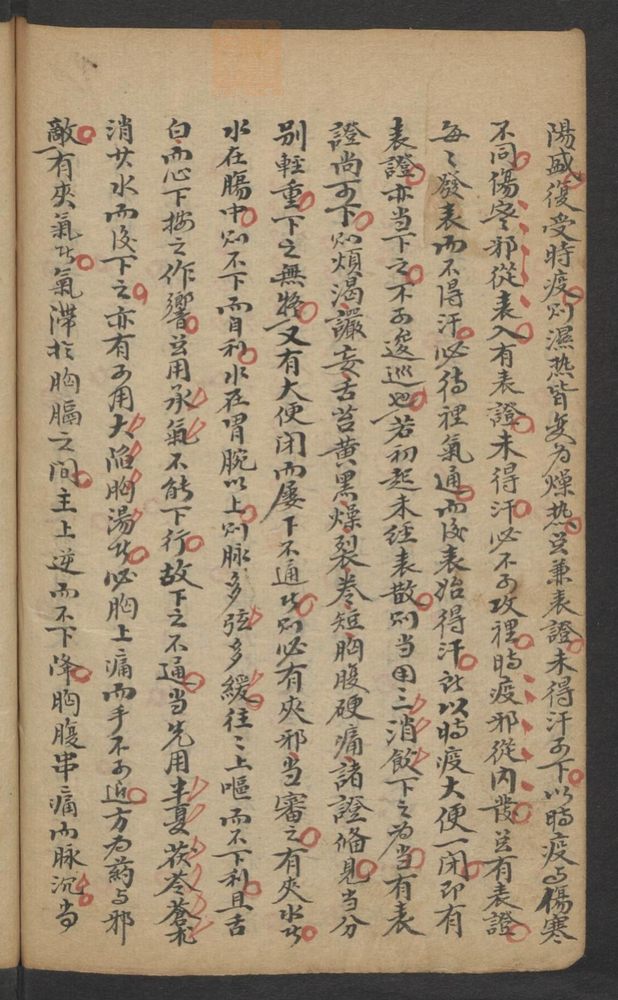 陽盛復受時疫則濕热皆变为燥热豈兼表證未得汗可下以時疫与傷寒
不同傷寒邪從表入有表證未得汗必不可攻裡時疫邪從内發豈有表證
每々發表而不得汗必待裡氣通而後表始得汗訣以時疫大便一閉即有
表證亦当下之不可逡巡也若初起未经表散則当用三消飲下之为当有表
證尚可下則煩渴讝妄舌苔黄黑燥裂卷短胸腹硬痛諸證俻見当分
别輕重下之無疑又有大便閉而屡下不通者則必有夾邪当審之有夾水者
水在腸中則不下而自利水在胃脘以上則脉多弦多緩往々上嘔而不下利且舌
白而心下按之作響豈用承氣不能下行故下之不通当先用半夏茯苓蒼朮
消其水而後下之亦有可用大陷胸湯者必胸上痛而手不可近方为药与邪
敵有夾氣者氣滞於胸膈之间主上逆而不下降胸腹串痛而脉沉当